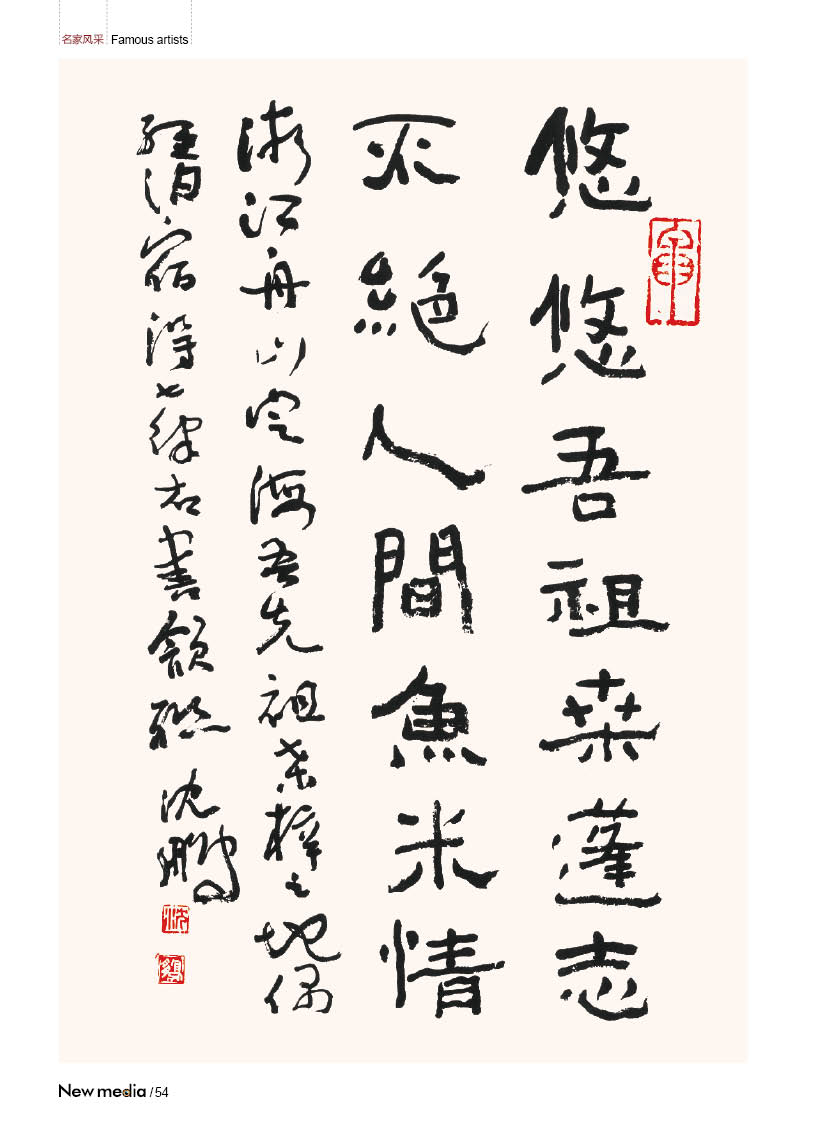 名家风采 Famous artists
悠悠吾祖桑蓬志
不絕人間魚米情
浙江舟山定海吾先祖桑梓之地偶
經泊宿得七律右書頷聯 沈鵬
New media / 54